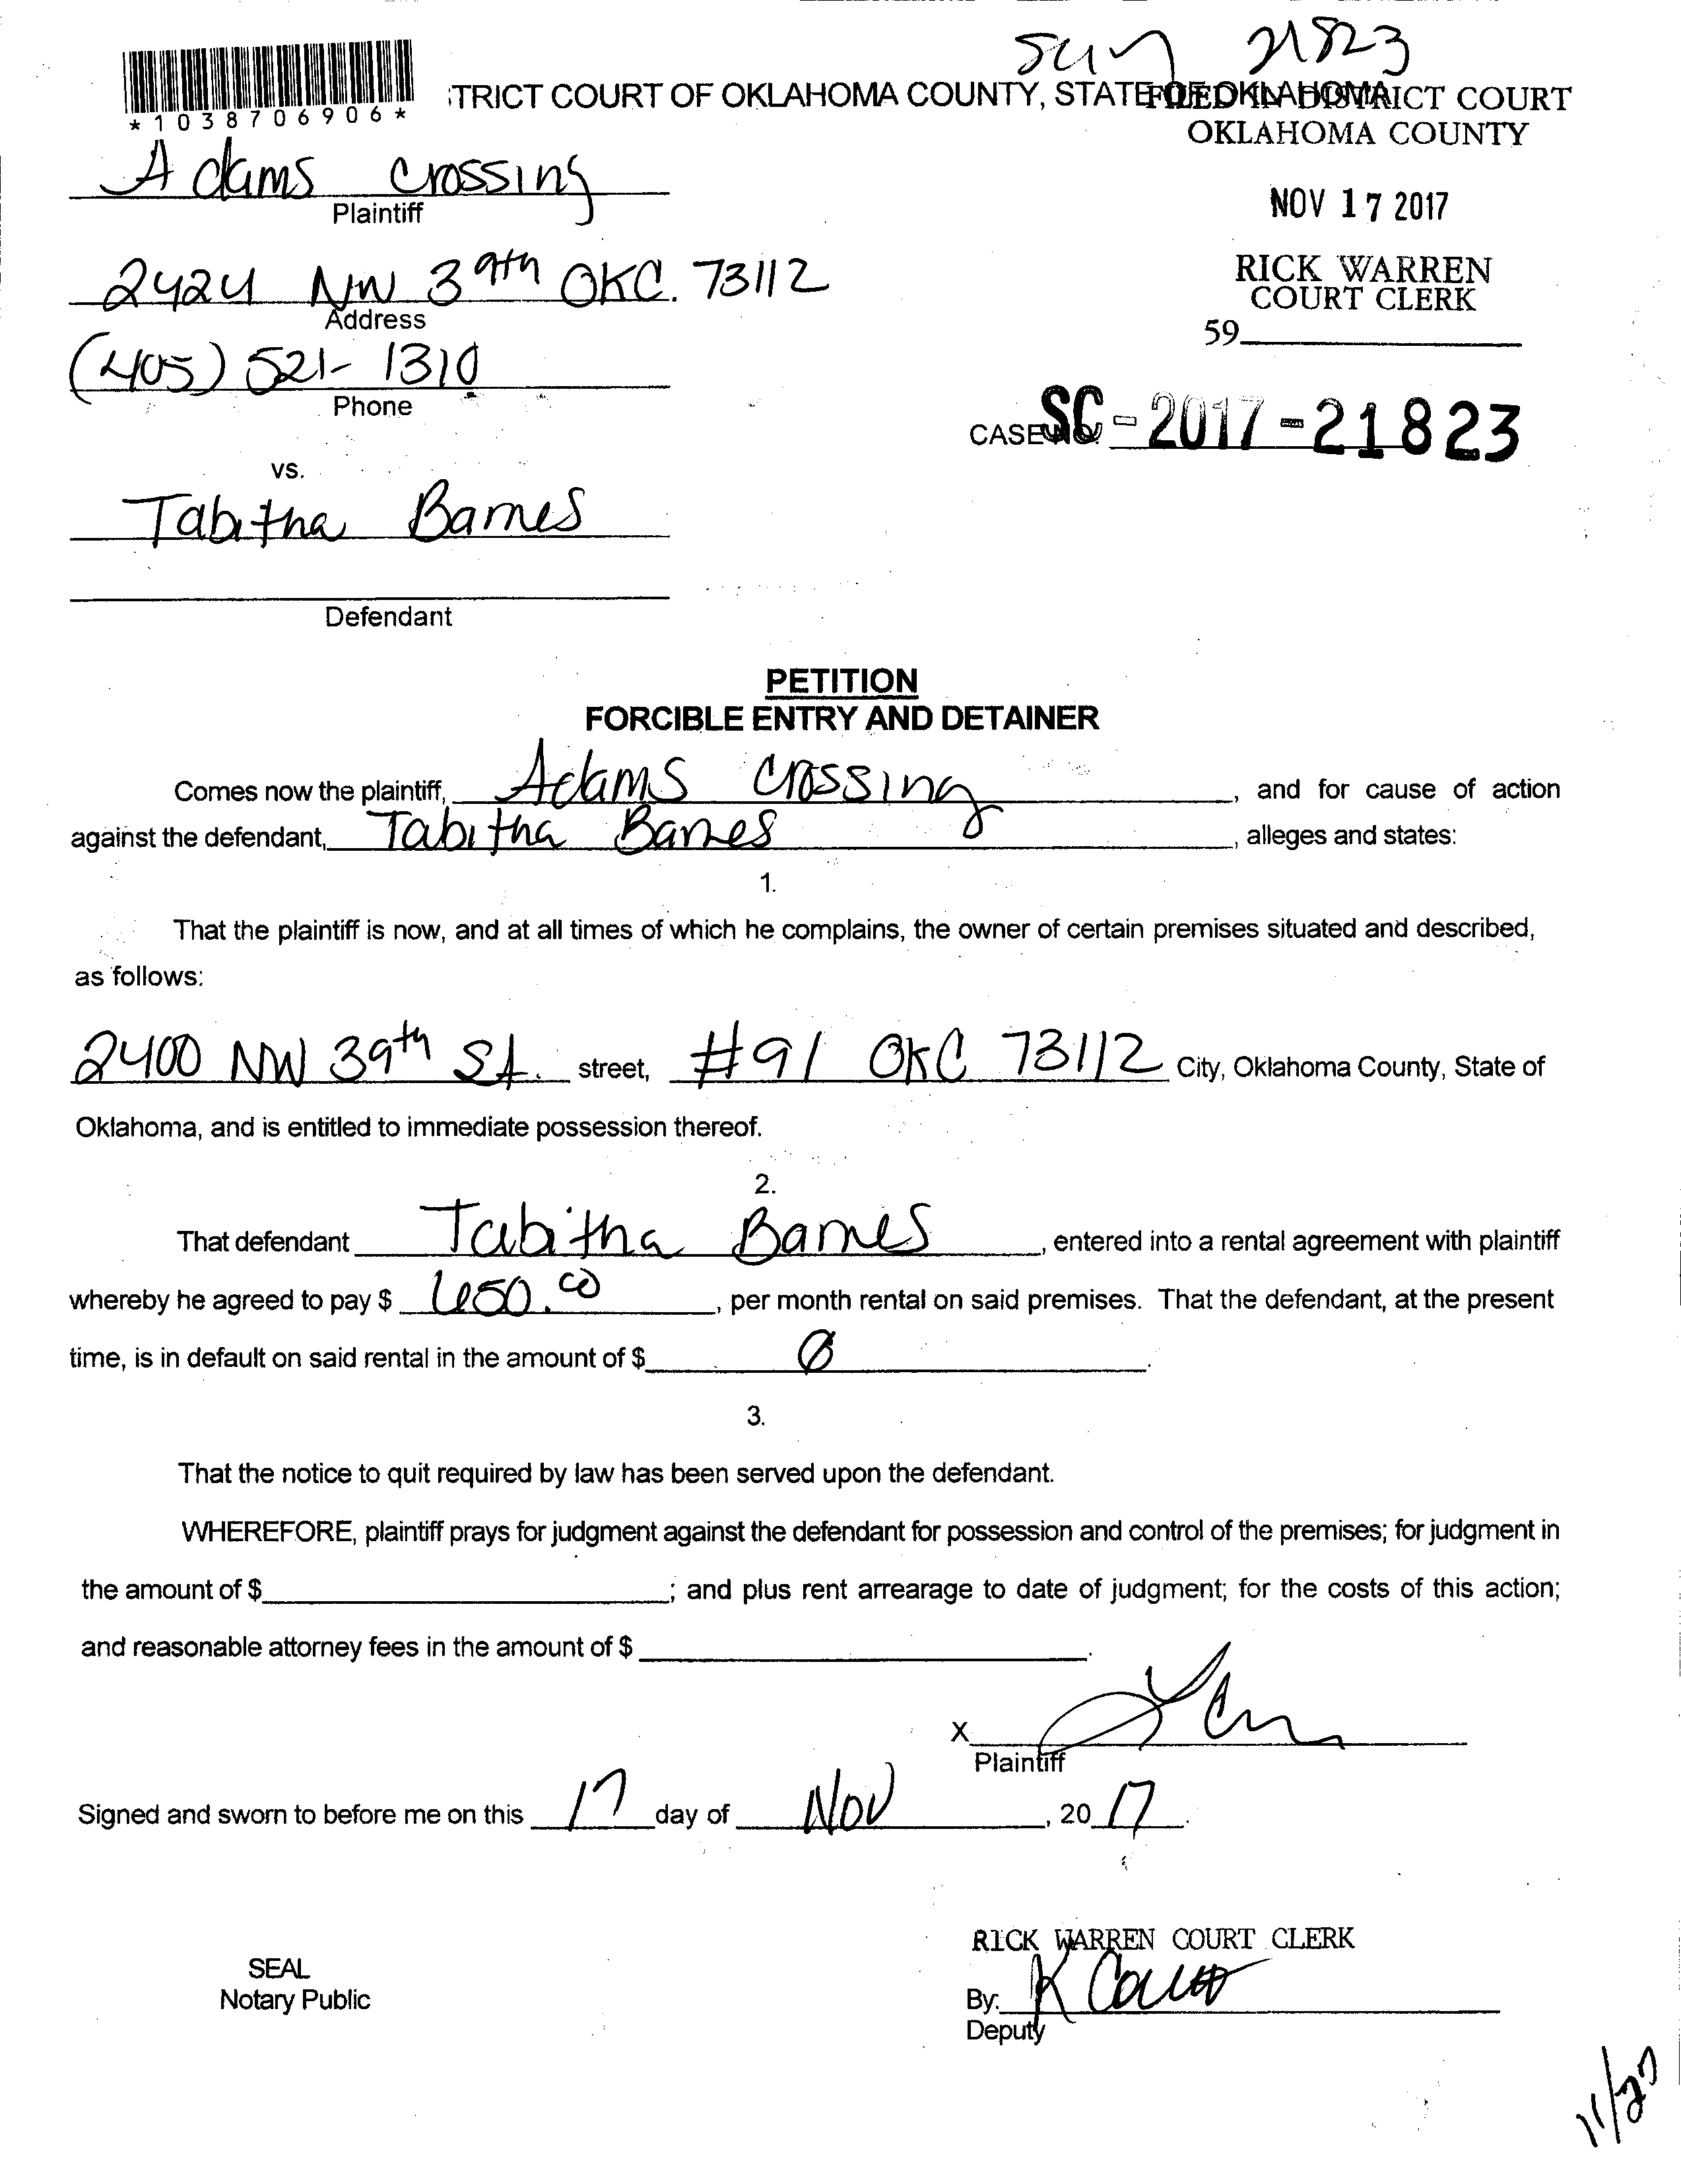 21823
*1038706906*
TRICT COURT OF OKLAHOMA COUNTY, STATE OF OKLAHOMA
FILED IN DISTRICT COURT
OKLAHOMA COUNTY
Adams Crossing
Plaintiff
NOV 17 2017
2424 NW 39th OKC. 73112
Address
RICK WARREN
COURT CLERK
59
(405) 521-1310
Phone
CASE NO. SC-2017-21823
vs.
Tabitha Barnes
Defendant
PETITION
FORCIBLE ENTRY AND DETAINER
Comes now the plaintiff, Adams Crossing, and for cause of action
against the defendant, Tabitha Barnes, alleges and states:
1.
That the plaintiff is now, and at all times of which he complains, the owner of certain premises situated and described,
as follows:
2400 NW 39th St. street, #91 OKC 73112 City, Oklahoma County, State of
Oklahoma, and is entitled to immediate possession thereof.
2.
That defendant Tabitha Barnes, entered into a rental agreement with plaintiff
whereby he agreed to pay $ 650.00, per month rental on said premises. That the defendant, at the present
time, is in default on said rental in the amount of $ Ø.
3.
That the notice to quit required by law has been served upon the defendant.
WHEREFORE, plaintiff prays for judgment against the defendant for possession and control of the premises; for judgment in
the amount of $; and plus rent arrearage to date of judgment; for the costs of this action;
and reasonable attorney fees in the amount of $.
X
Plaintiff
Signed and sworn to before me on this 17 day of Nov, 20 17.
RICK WARREN COURT CLERK
SEAL
Notary Public
By:
Deputy